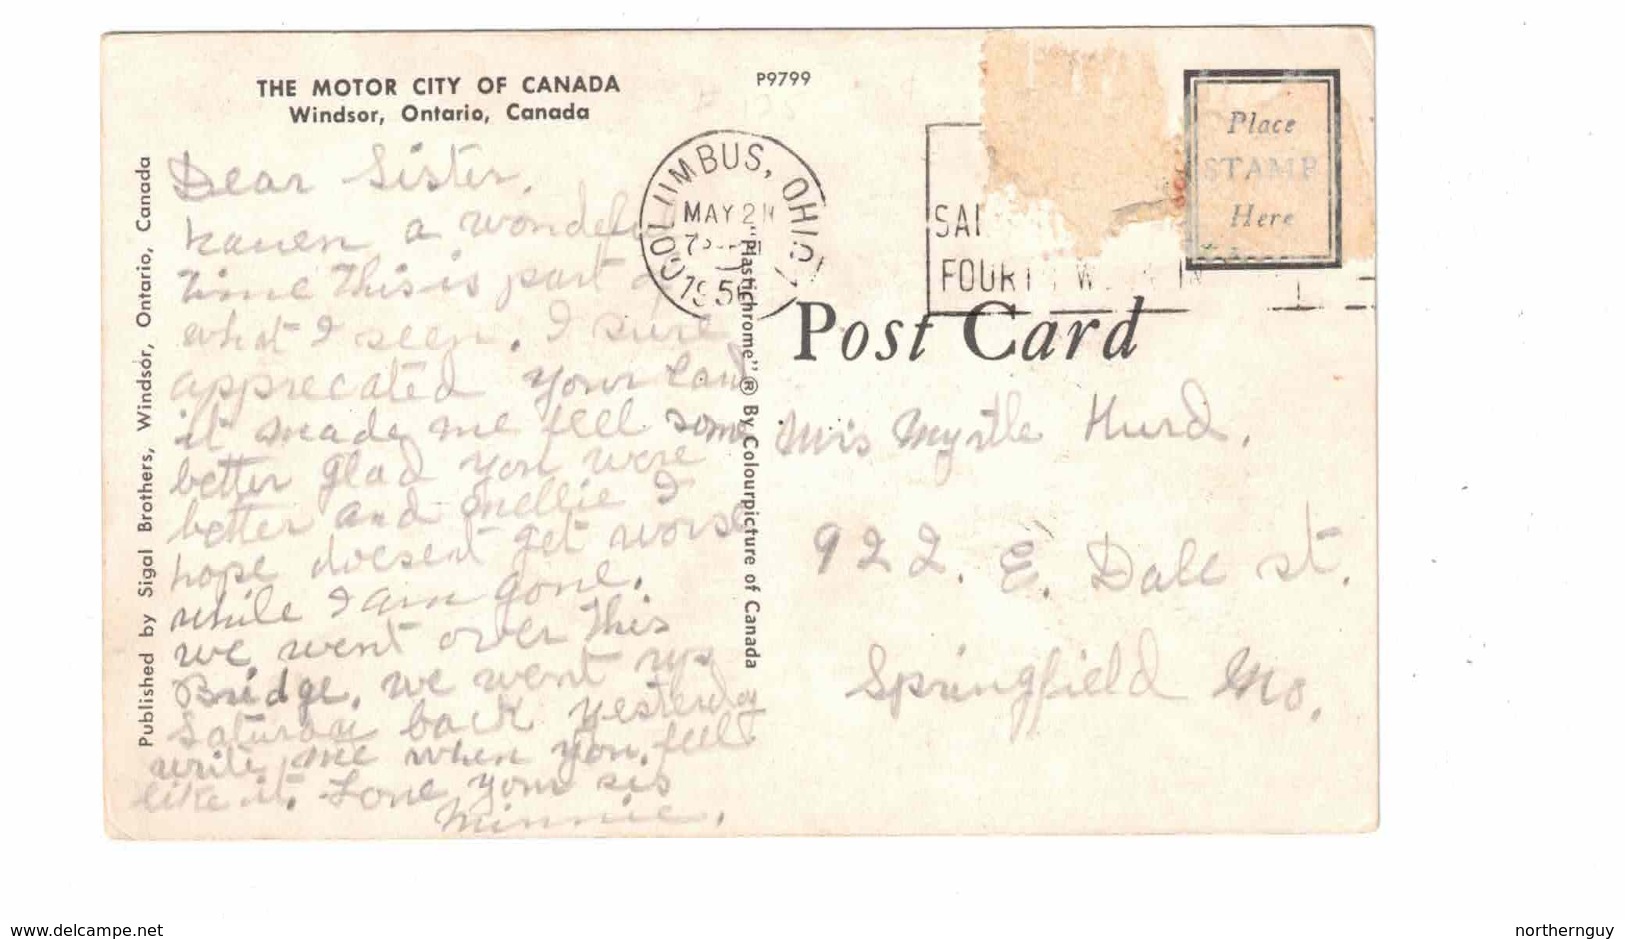 THE MOTOR CITY OF CANADA
Windsor, Ontario, Canada
P9799
Published by Sigal Brothers, Windsor, Ontario, Canada
Dear Sister,
haven a wonderful
time This is part of
what I seen. I sure
apprecated your card
it made me feel some
better glad you were
better and nellie I
hope doesent get worse
while I am gone.
we went over This
Bridge, we went up
Saturday back yesterday
write me when you feel
like it. Love your sis
Minnie.
COLUMBUS, OHIO
MAY 2
195
SAI
FOURT
Place
STAMP
Here
Post Card
"Plastichrome" ® By Colourpicture of Canada
Myrtle Hurd.
922. E. Dale st.
Springfield Mo.
www.delcampe.net
northernguy